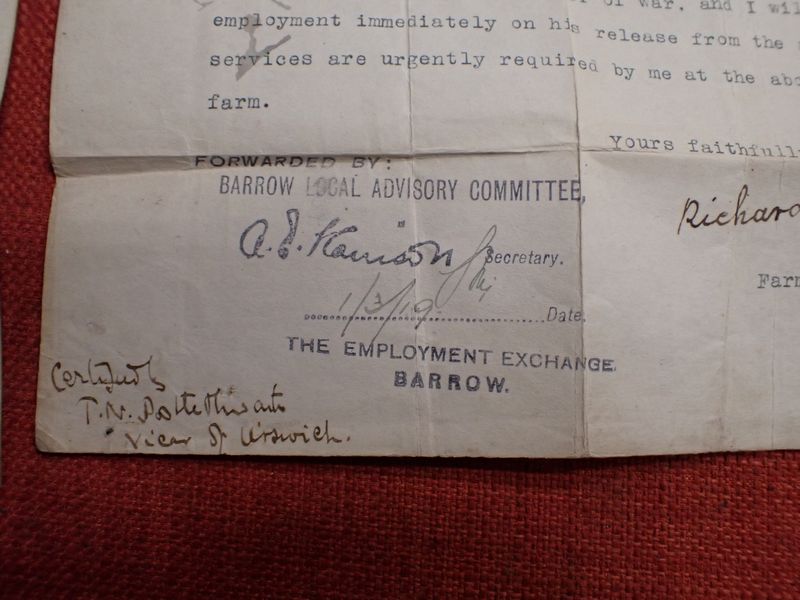 of war, and I wil
employment immediately on his release from the
services are urgently required by me at the abo
farm.
Yours faithfully
FORWARDED BY:
BARROW LOCAL ADVISORY COMMITTEE,
Richard
A. E. Harrison Secretary.
Farm
1/3/19 Date.
THE EMPLOYMENT EXCHANGE.
BARROW.
Certified by
T. N. Postlethwaite
Vicar of Urswick.